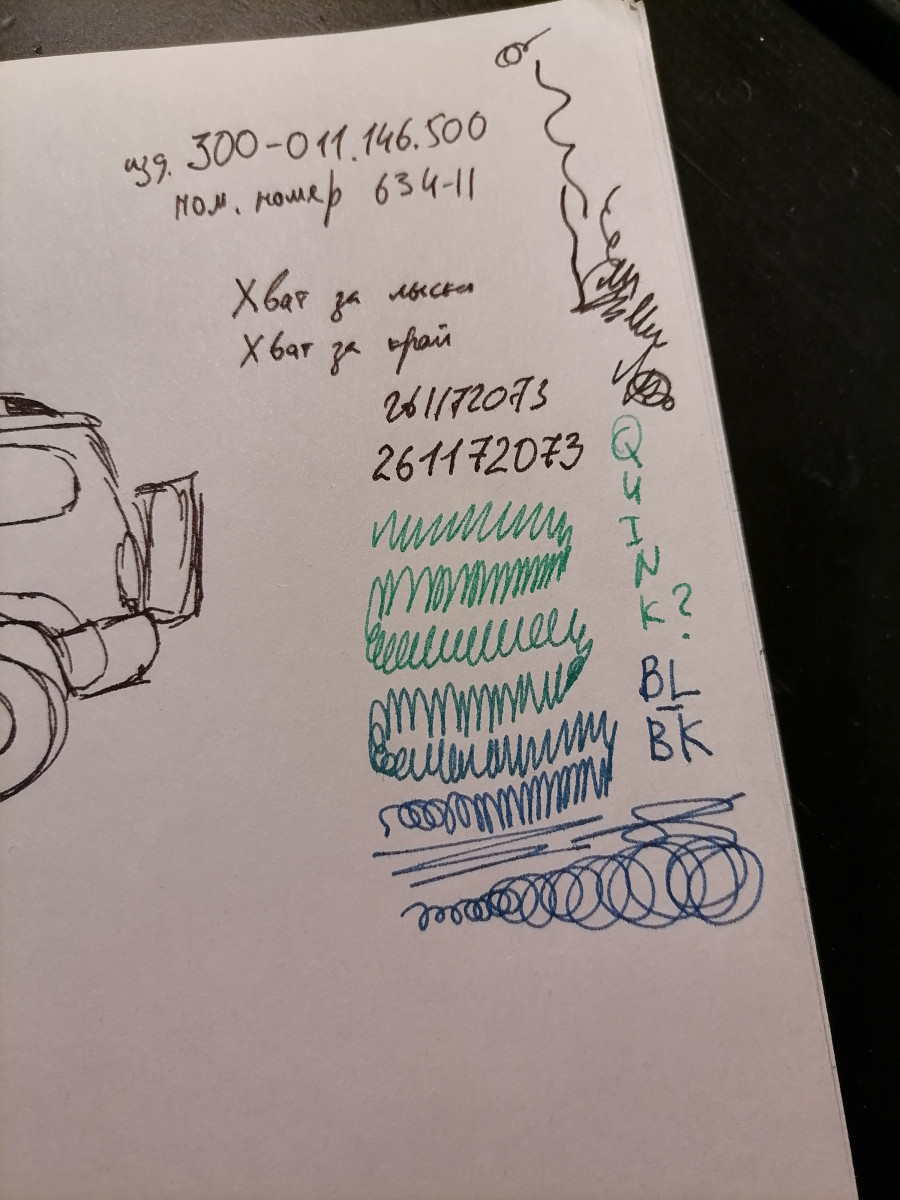 изд. 300-011.146.500
ном. номер 634-11
Хват за лыски
Хват за край
261172073
261172073
Q
U
I
N
K?
BL
BK